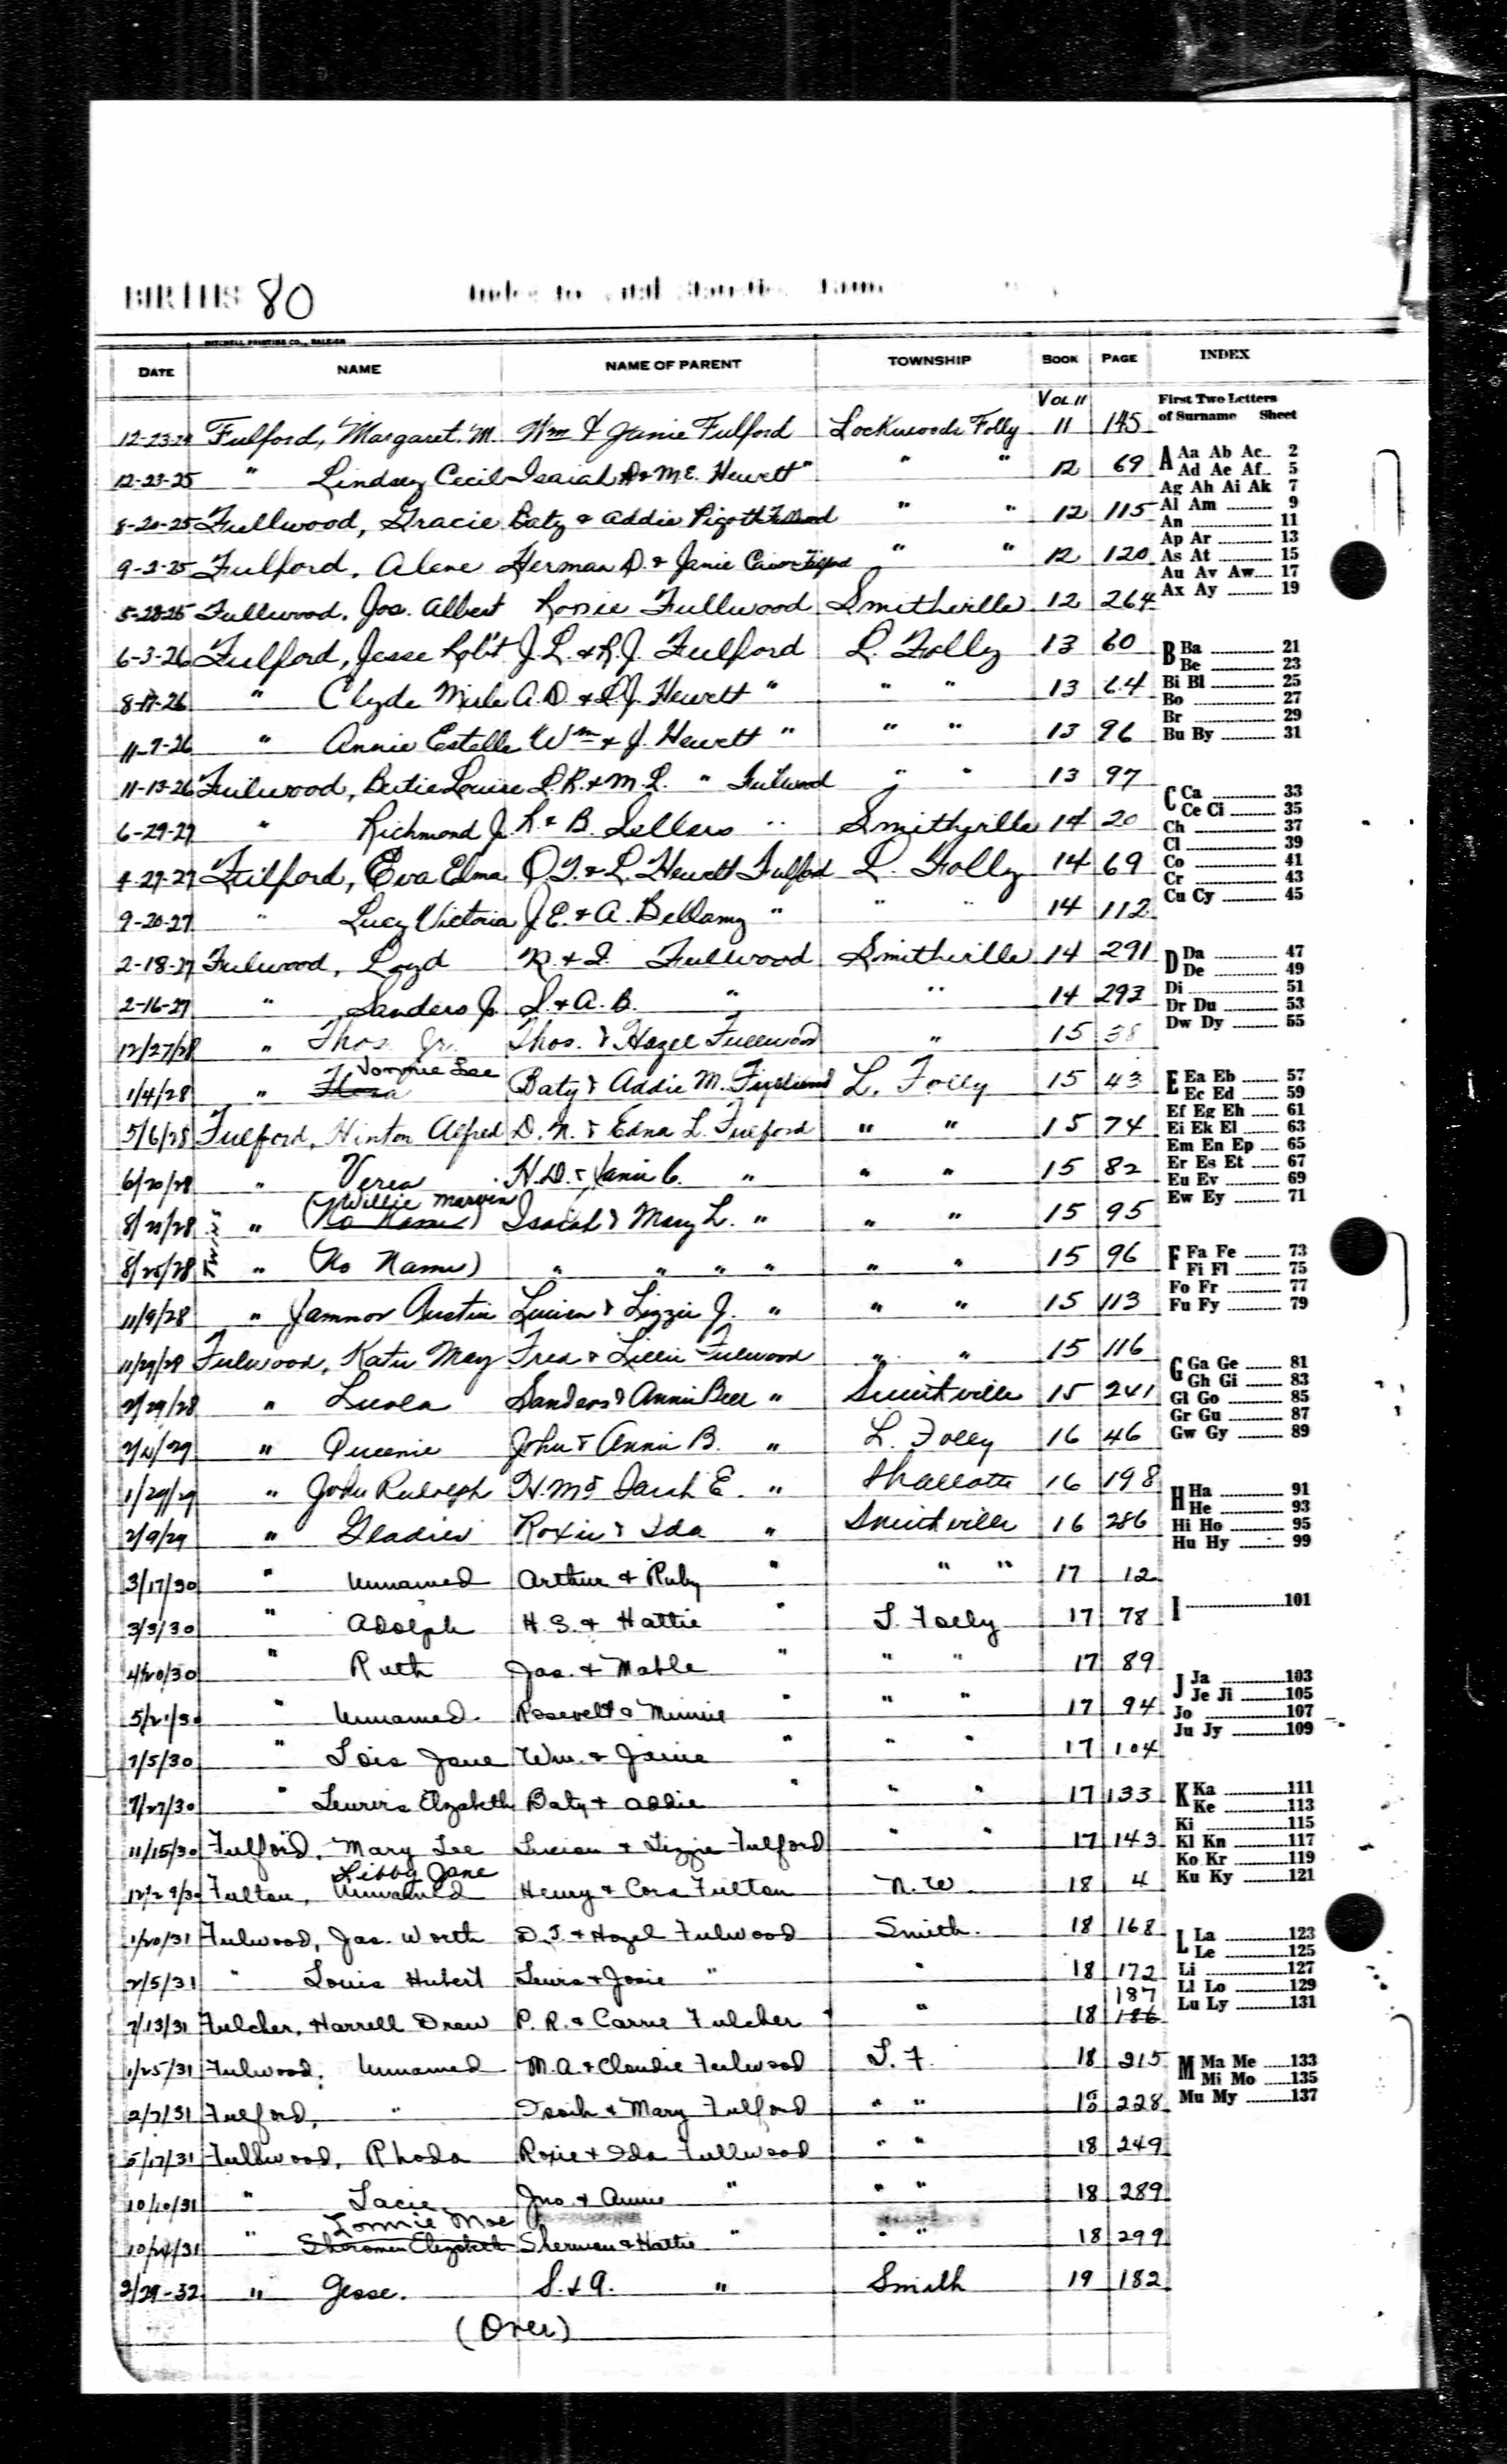 BIRTHS 80
Index to Vital Statistics
MITCHELL PRINTING CO., RALEIGH
DATE NAME NAME OF PARENT TOWNSHIP BOOK PAGE INDEX
Vol 11
First Two Letters
of Surname Sheet
12-23-24 Fulford, Margaret. M. Wm & Janie Fulford Lockwoods Folly 11 145
12-23-25 " Lindsey Cecil Isaiah & M E. Hewett " " " 12 69
8-20-25 Fullwood, Gracie Baty & Addie Pigott Fullwood " " 12 115
9-2-25 Fulford, Alene Herman D. & Janie " " 12 120
5-28-25 Fullwood, Jos. Albert Rosie Fullwood Smithville 12 264
6-3-26 Fulford, Jesse Rob't J. L. & R. J. Fulford L. Folly 13 60
8-17-26 " Clyde A. D. & L. J. Hewett " " " 13 64
11-7-26 " Annie Estelle Wm & J. Hewett " " " 13 96
11-13-26 Fulwood, Bertie Louise L. R. & M. L. " Fulwood " " 13 97
6-29-27 " Richmond J. R. & B. Sellers " Smithville 14 20
4-27-27 Fulford, Eva Elma O. T. & L. Hewett Fulford L. Folly 14 69
9-20-27 " Lucy Victoria J. E. & A. Bellamy " " " 14 112
2-18-27 Fulwood, Loyd R. & I. Fullwood Smithville 14 291
2-16-27 " Sanders Jr. S. & A. B. " " 14 293
12/27/28 " Thos. Jr. Thos. & Hazel Fullwood " 15 38
Vonnie Lee
1/4/28 " Baty & Addie M. L. Folly 15 43
5/6/28 Fulford, Hinton Alfred D. N. & Edna L. Fulford " " 15 74
6/20/28 " Verea H. D. & Janie C. " " " 15 82
Willie Marvin
8/25/28 Twins " (No Name) Isaiah & Mary L. " " " 15 95
8/25/28 " (No Name) " " " " " " 15 96
11/9/28 " Austin Lucien & Lizzie J. " " " 15 113
11/29/28 Fulwood, Katie May Fred & Lillie Fulwood " " 15 116
2/29/28 " Luola Sanders & Annie Bell " Smithville 15 241
" Queenie John & Annie B. " L. Folly 16 46
1/29/29 " John Rudolph H. M. & Sarah E. " Shallotte 16 198
2/9/29 " Gladies Roxie & Ida " Smithville 16 286
3/17/30 " Unnamed Arthur & Ruby " " " 17 12
3/3/30 " Adolph H. S. & Hattie " L. Folly 17 78
4/20/30 " Ruth Jas. & Mable " " " 17 89
5/21/30 " Unnamed Rosevelt & Minnie " " " 17 94
7/5/30 " Lois Jane Wm. & Janie " " " 17 104
7/27/30 " Elizabeth Baty & Addie " " " 17 133
11/15/30 Fulford, Mary Lee Lucian & Lizzie Fulford " " 17 143
Libby Jane
12/29/30 Fulton, Unnamed Henry & Cora Fulton N. W. 18 4
1/20/31 Fulwood, Jas. Worth D. T. & Hazel Fulwood Smith. 18 168
2/5/31 " Louis Hubert Lewis & Josie " " 18 172
187
7/13/31 Fulcher, Harrell Drew P. R. & Carrie Fulcher " 18 186
1/25/31 Fulwood, Unnamed M. A. & Claudie Fulwood L. F. 18 215
2/7/31 Fulford, " & Mary Fulford " " 18 228
5/17/31 Fullwood, Rhoda Roxie & Ida Fullwood " " 18 249
10/10/31 " Lacie Jno. & Annie " " " 18 289
Lonnie Mae
10/24/31 " Elizabeth Sherman & Hattie " " " 18 299
2/29-32 " Jesse. S. & A. " Smith 19 182
(Over)
A Aa Ab Ac 2
Ad Ae Af 5
Ag Ah Ai Ak 7
Al Am 9
An 11
Ap Ar 13
As At 15
Au Av Aw 17
Ax Ay 19
B Ba 21
Be 23
Bi Bl 25
Bo 27
Br 29
Bu By 31
C Ca 33
Ce Ci 35
Ch 37
Cl 39
Co 41
Cr 43
Cu Cy 45
D Da 47
De 49
Di 51
Dr Du 53
Dw Dy 55
E Ea Eb 57
Ec Ed 59
Ef Eg Eh 61
Ei Ek El 63
Em En Ep 65
Er Es Et 67
Eu Ev 69
Ew Ey 71
F Fa Fe 73
Fi Fl 75
Fo Fr 77
Fu Fy 79
G Ga Ge 81
Gh Gi 83
Gl Go 85
Gr Gu 87
Gw Gy 89
H Ha 91
He 93
Hi Ho 95
Hu Hy 99
I 101
J Ja 103
Je Ji 105
Jo 107
Ju Jy 109
K Ka 111
Ke 113
Ki 115
Kl Kn 117
Ko Kr 119
Ku Ky 121
L La 123
Le 125
Li 127
Ll Lo 129
Lu Ly 131
M Ma Me 133
Mi Mo 135
Mu My 137